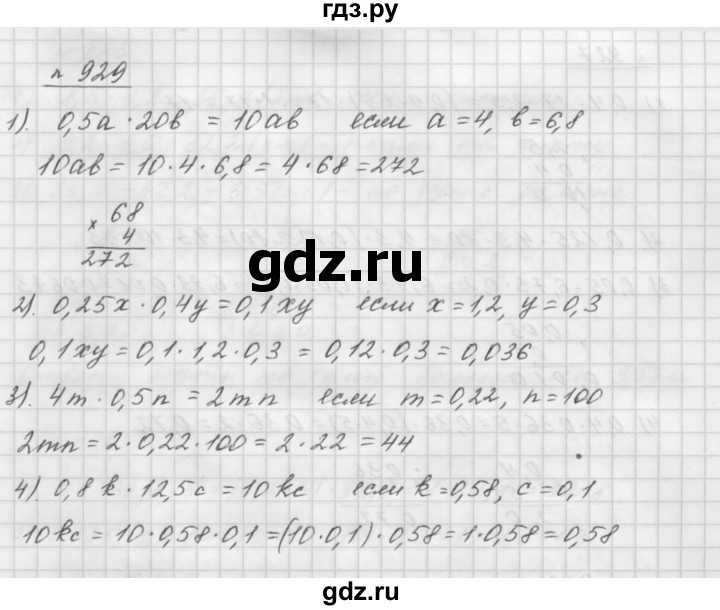 гдз.ру
№ 929
1). 0,5a · 20b = 10ab если a = 4, b = 6,8
10ab = 10 · 4 · 6,8 = 4 · 68 = 272
× 68
4
272
gdz.ru
2). 0,25x · 0,4y = 0,1xy если x = 1,2, y = 0,3
0,1xy = 0,1 · 1,2 · 0,3 = 0,12 · 0,3 = 0,036
3). 4m · 0,5n = 2mn если m = 0,22, n = 100
2mn = 2 · 0,22 · 100 = 2 · 22 = 44
4). 0,8k · 12,5c = 10kc если k = 0,58, c = 0,1
10kc = 10 · 0,58 · 0,1 = (10 · 0,1) · 0,58 = 1 · 0,58 = 0,58
gdz.ru